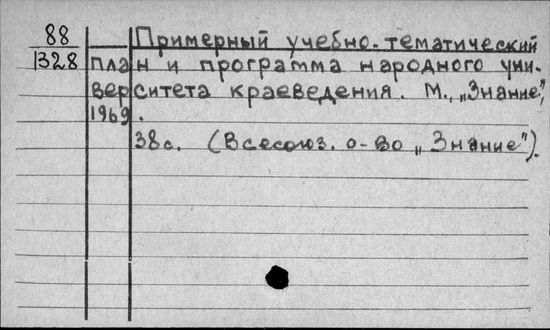 88
1328
Примерный учебно-тематический
план и программа народного уни-
верситета краеведения. М., „Знание”,
1969.
38 с. (Всесоюз. о-во „Знание”).